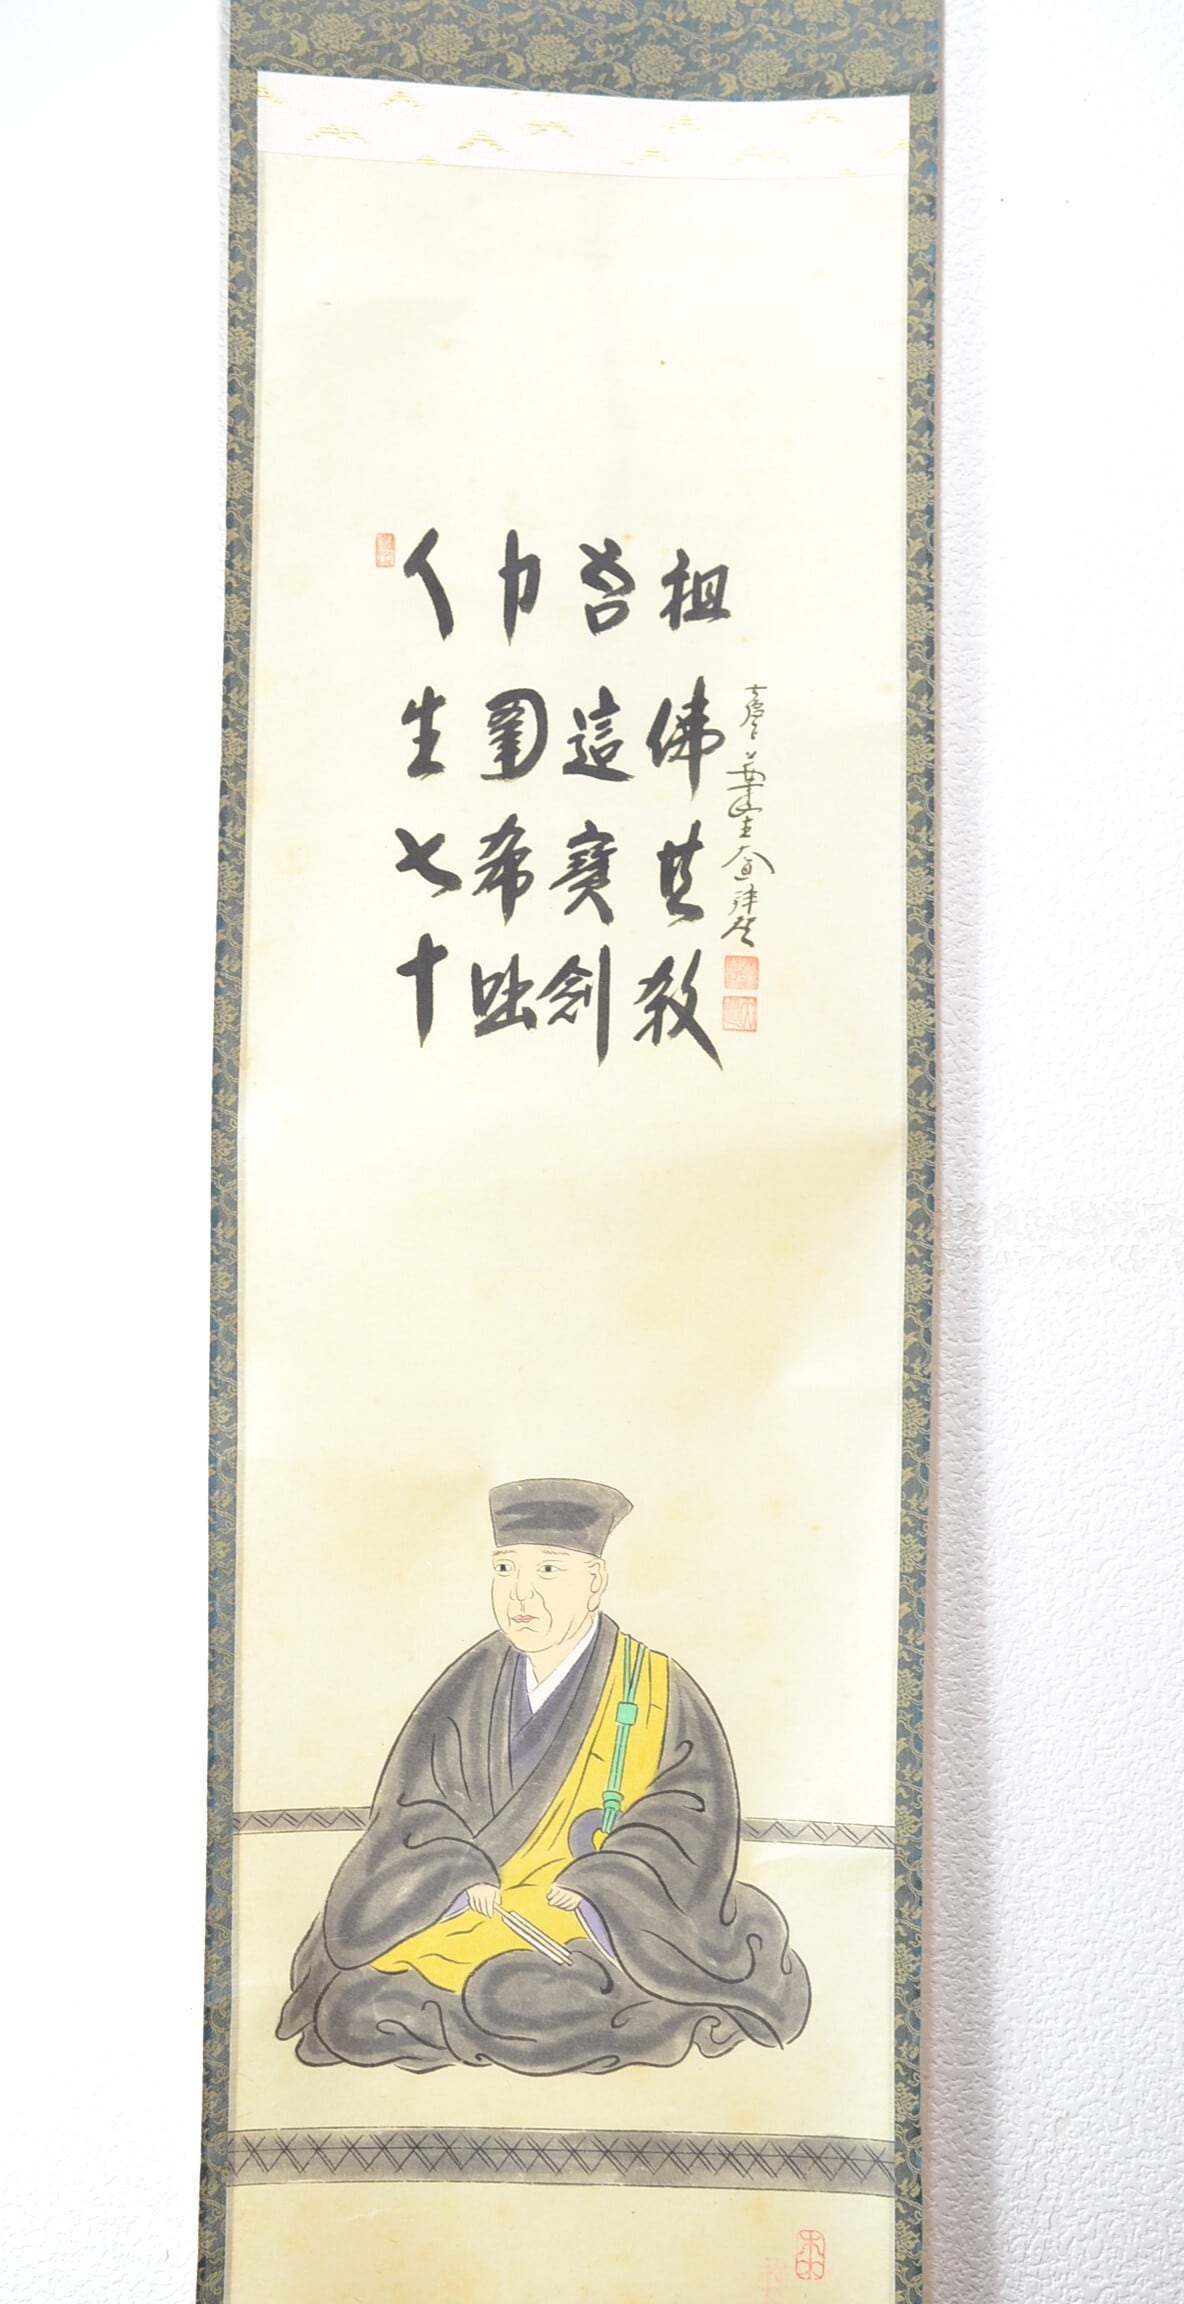 人生七十
力圍希咄
吾這寶剣
祖佛共殺